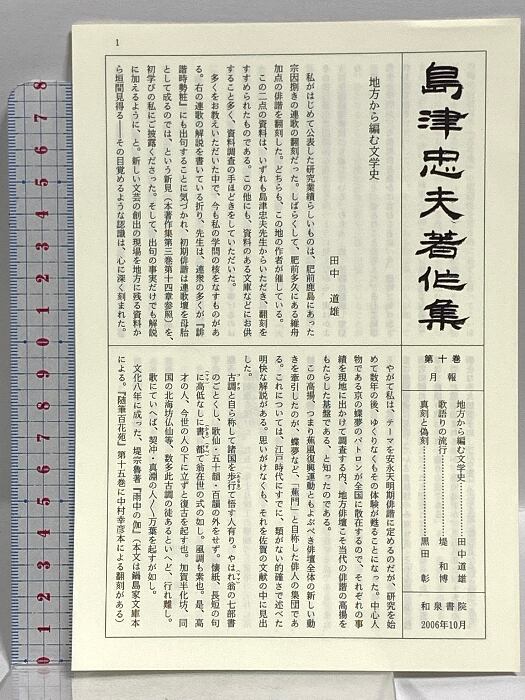 1
島津忠夫著作集
第十巻
月報
地方から編む文学史…………田中道雄
歌語りの流行…………堤 和博
真刻と偽刻…………黒田 彰
和泉書院
2006年10月
地方から編む文学史
田中 道雄
私がはじめて公表した研究業績らしいものは、肥前鹿島にあった
宗因捌きの連歌の翻刻だった。しばらくして、肥前多久にある維舟
加点の俳諧を翻刻した。どちらも、この地の作者が催している。
この二点の資料は、いずれも島津忠夫先生からいただき、翻刻を
すすめられたものである。この他にも、資料のある文庫などにお供
すること多く、資料調査の手ほどきをしていただいた。
多くをお教えいただいた中で、今も私の学問の核をなすものがあ
る。右の連歌の解説を書いている折り、先生は、連衆の多くが『俳
諧時勢粧』にも出句することに気づかれ、初期俳諧は連歌壇を母胎
として成るのでは、という新見（本著作集第三巻第十四章参照）を、
初学びの私にご披露くださった。そして、出句の事実だけでも解説
に加えるように、と。新しい文芸の創出の現場を地方に残る資料か
ら垣間見得る――その目覚めるような認識は、心に深く刻まれた。
やがて私は、テーマを安永天明期俳諧に定めるのだが、研究を始
めて数年の後、ゆくりなくもその体験が甦ることになった。中心人
物である京の蝶夢のパトロンが全国に散在するので、それぞれの事
績を現地に出かけて調査する内、地方俳壇こそ当代の俳諧の高揚を
もたらした基盤である、と知ったのである。
この高揚、つまり蕉風復興運動ともよぶべき俳壇全体の新しい動
きを牽引したのが、蝶夢など、「蕉門」と自称した俳人の集団であ
る。これについては、江戸時代にすでに、類がない的確さで述べた
明快な解説がある。思いがけなくも、それを佐賀の文献の中に見出
した。
古調と自ら称して諸国を歩行て悟す人有り。やはれ翁の七部書
のごとくし、歌仙・五十韻・百韻の外をせず。懐紙、長短の句
に高低なしに書、都て翁在世の式の如し。風調も素也。是、高
才の人、今世の人の下に立ずと復古を起す也。加賀半化坊、同
国の北海坊仏仙等、数多此古調の徒あるといへど、行れ難し。
歌にていへば、契冲・真淵の人〳〵万葉を起すが如し。
文化八年に成った、堤宗魯著『雨中の伽』（本文は鍋島家文庫本
による。『随筆百花苑』第十五巻に中村幸彦本による翻刻がある）